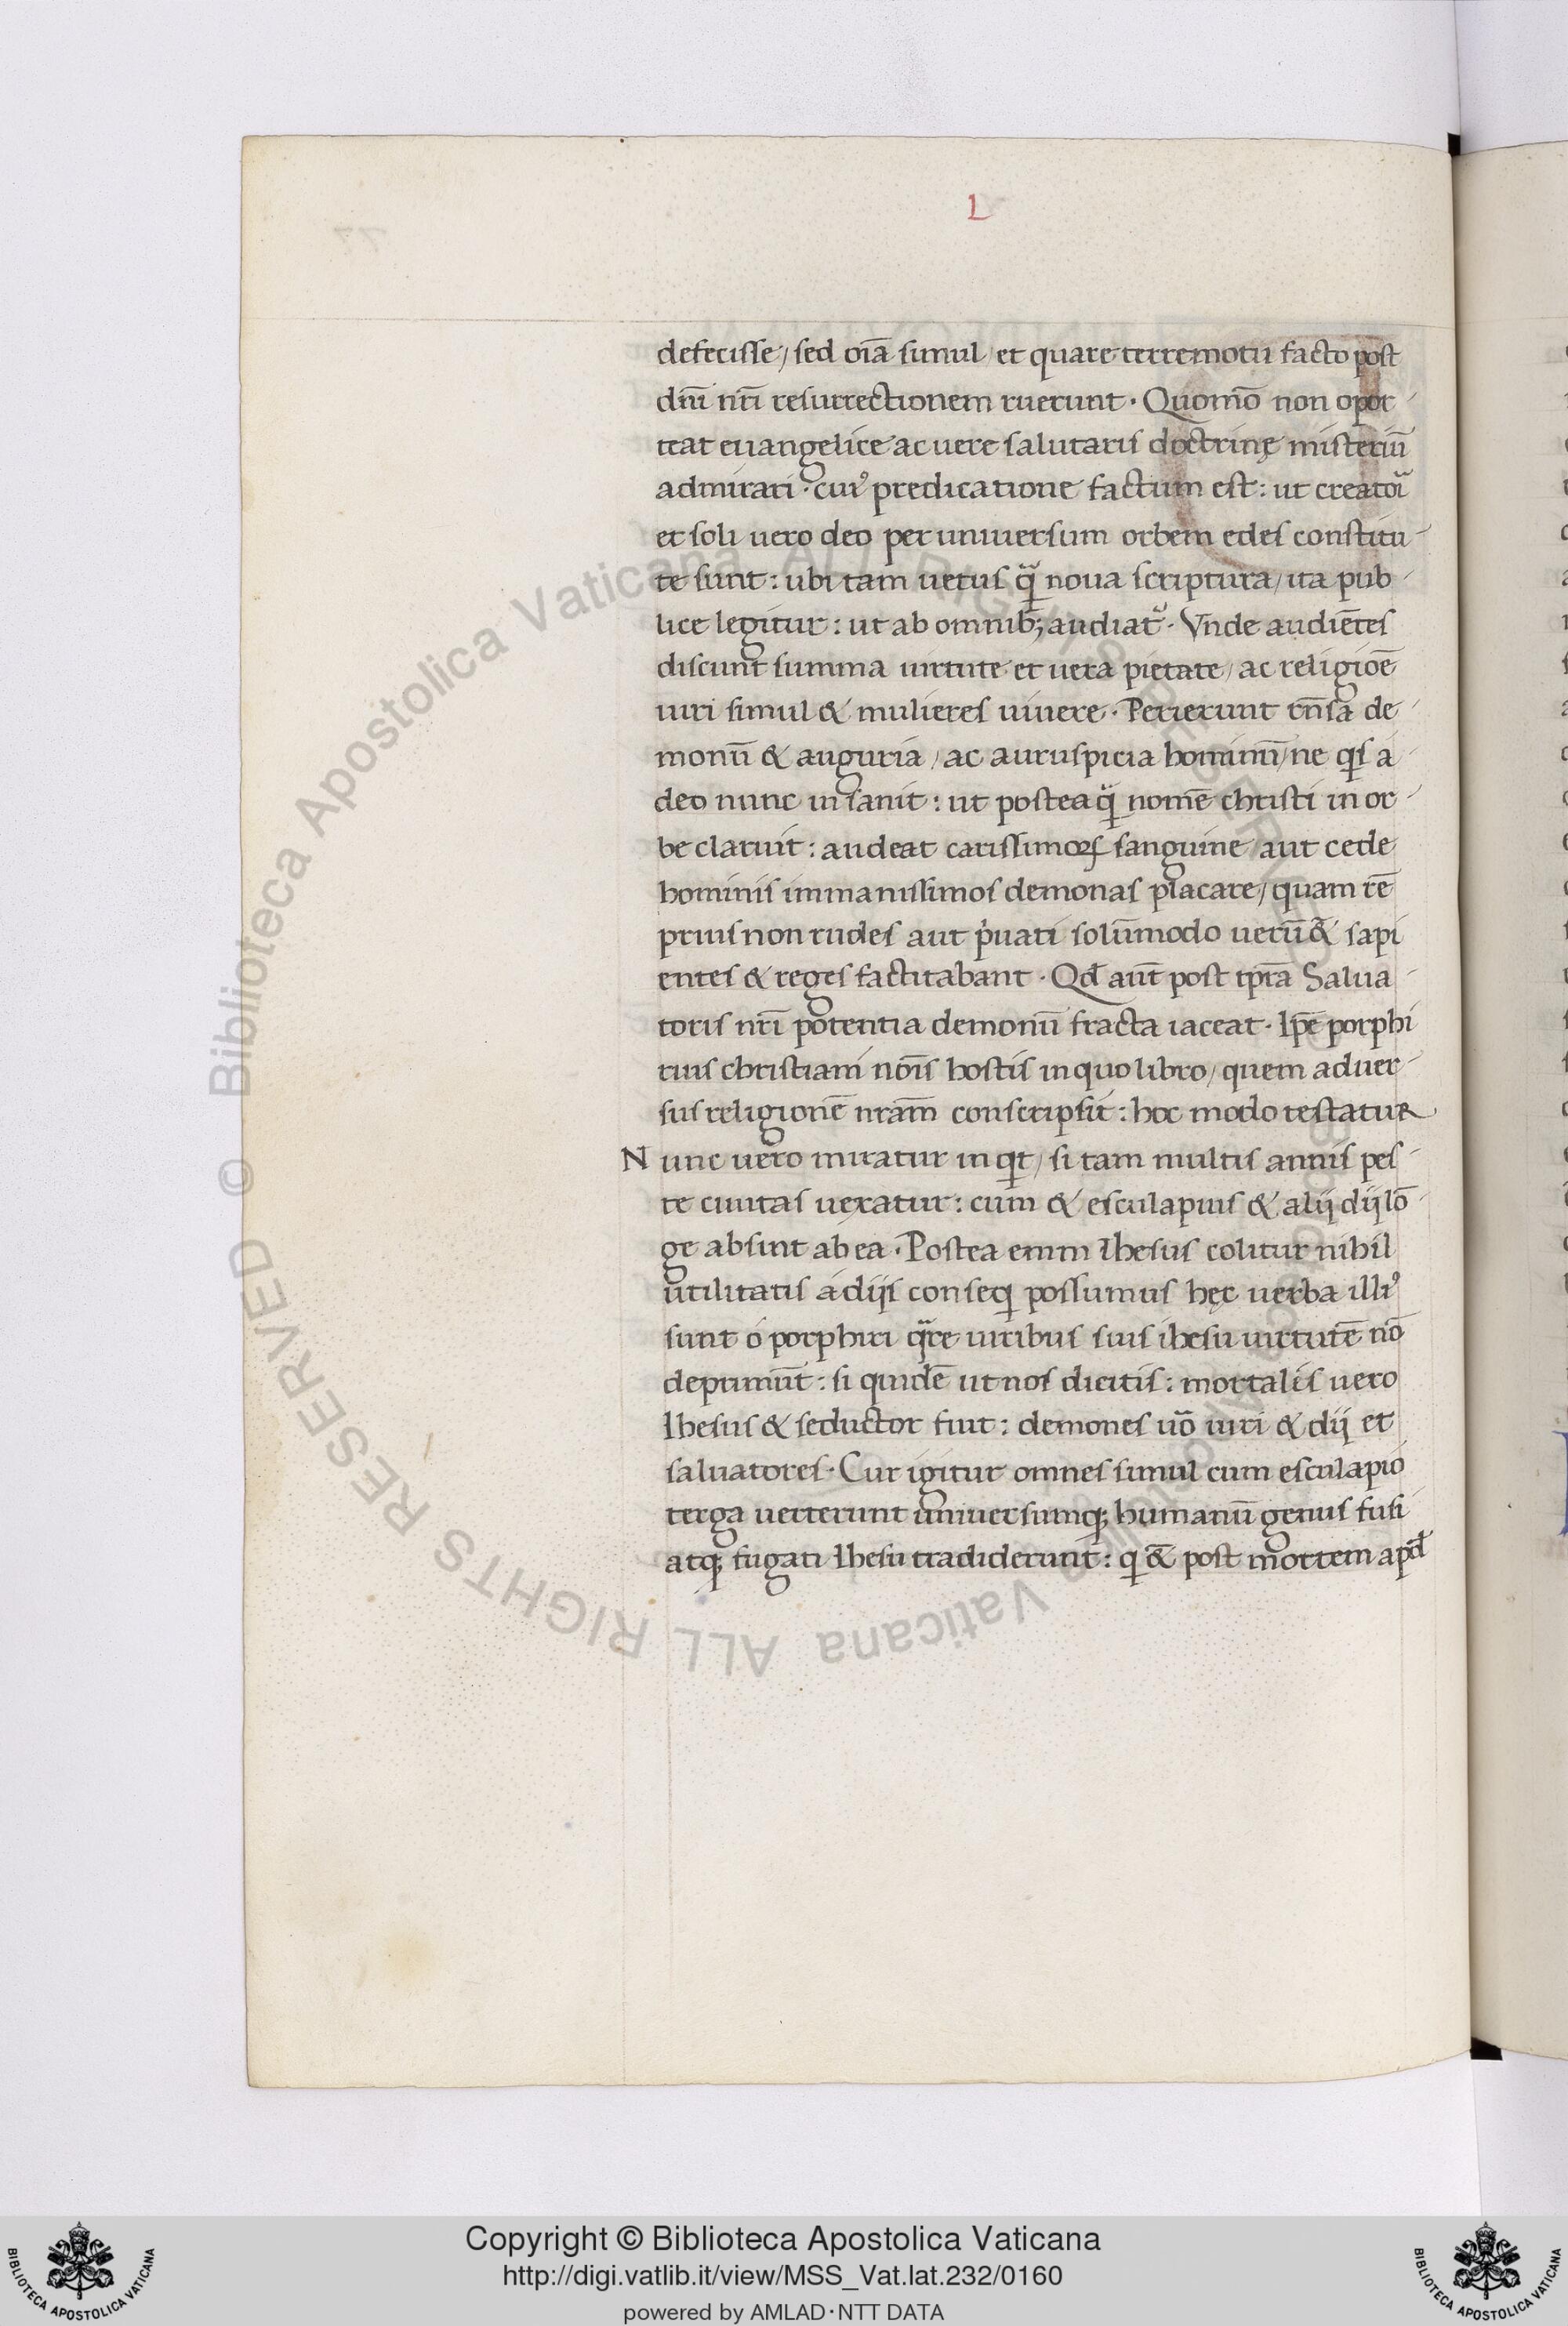 L
defecisse / sed oīa simul / et quare terremotu facto post
dn̄i nr̄i resurrectionem ruerunt · Quomō non opor
teat euangelice ac uere salutaris doctrinę misteriū
admirari · cuiꝰ predicatione factum est : ut creatori
et soli uero deo per uniuersum orbem edes constitu
te sunt : ubi tam uetus qͣ noua scriptura / ita pub
lice legitur : ut ab omnibꝫ audiat᷑ · Vnde audiētes
discunt summa uirtute et uera pietate / ac religiōe
uiri simul & mulieres uiuere · Perierunt rn̄sa de
monū & auguria / ac auruspicia hominū / ne qis a
deo nunc insanit : ut posteaqͣ nomē christi in or
be claruit : audeat carissimoꝝ sanguine aut cede
hominis immanissimos demonas placare / quam rē
prius non rudes aut pͥuati solūmodo uerū&̄ sapi
entes & reges factitabant · Qd̄ aut̄ post tpr̄a Salua
toris nr̄i potentia demonū fracta iaceat · Ip̄e porphi
rius christiani nōis hostis in quo libro / quem aduer
sus religionē nram̄ conscripsit : hoc modo testatur
Nunc uero miratur inqit / si tam multis annis pes
te ciuitas uexatur : cum & esculapius & alij dij lō
ge absint ab ea · Postea enim Ihesus colitur nihil
utilitatis a dijs conseqi possumus hęc uerba illiꝰ
sunt o porphiri qͣre uiribus suis ihesu uirtutē nō
deprimūt : si quidē ut nos dicitis : mortalis uero
Ihesus & seductor fuit : demones uō uiri & dij et
saluatores · Cur igitur omnes simul cum esculapio
terga uerterunt uniuersumqꝫ humanū genus fusi
atqꝫ fugati Ihesu tradiderunt : qi &̄ post mortem apd̄
© Biblioteca Apostolica Vaticana ALL RIGHTS RESERVED
Copyright © Biblioteca Apostolica Vaticana
http://digi.vatlib.it/view/MSS_Vat.lat.232/0160
powered by AMLAD·NTT DATA
BIBLIOTECA APOSTOLICA VATICANA
BIBLIOTECA APOSTOLICA VATICANA